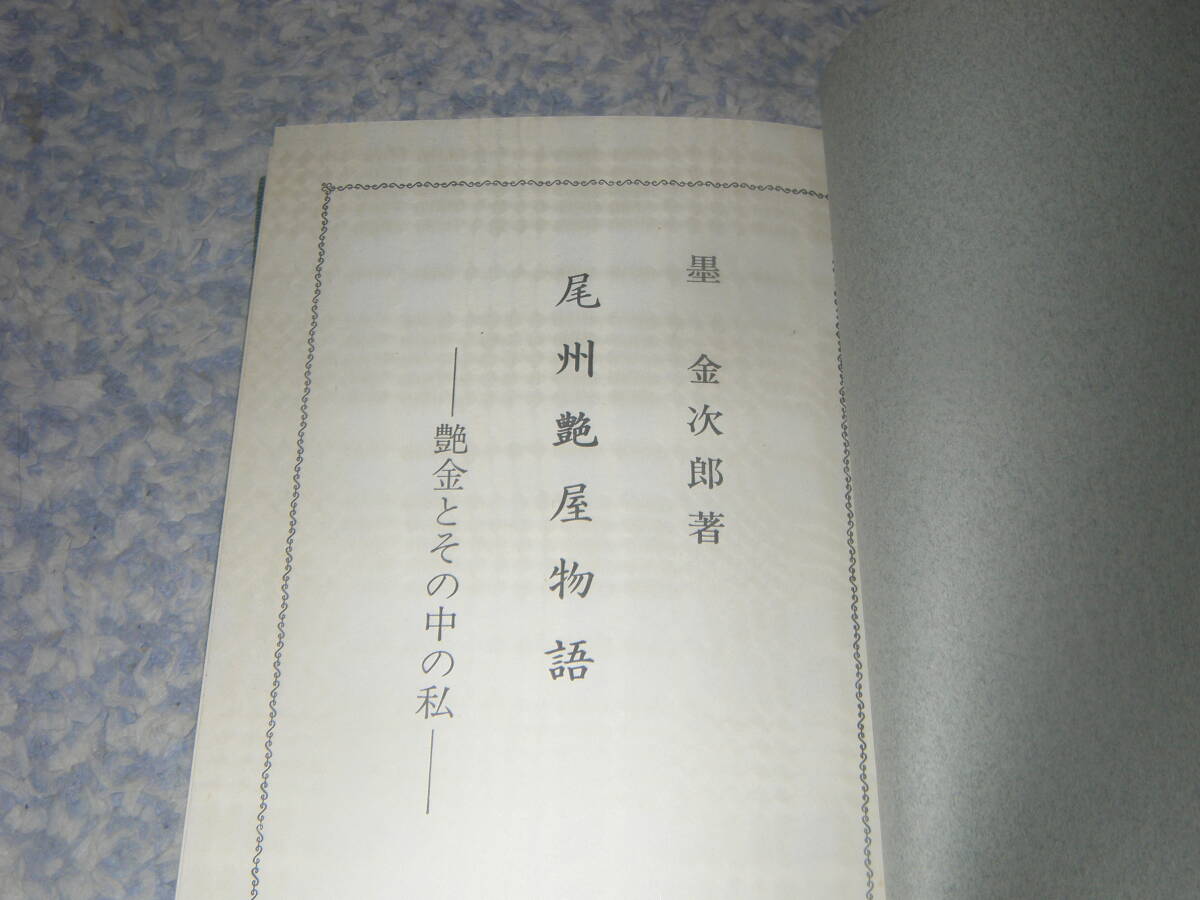 墨 金次郎著
尾州艶屋物語
――艶金とその中の私――